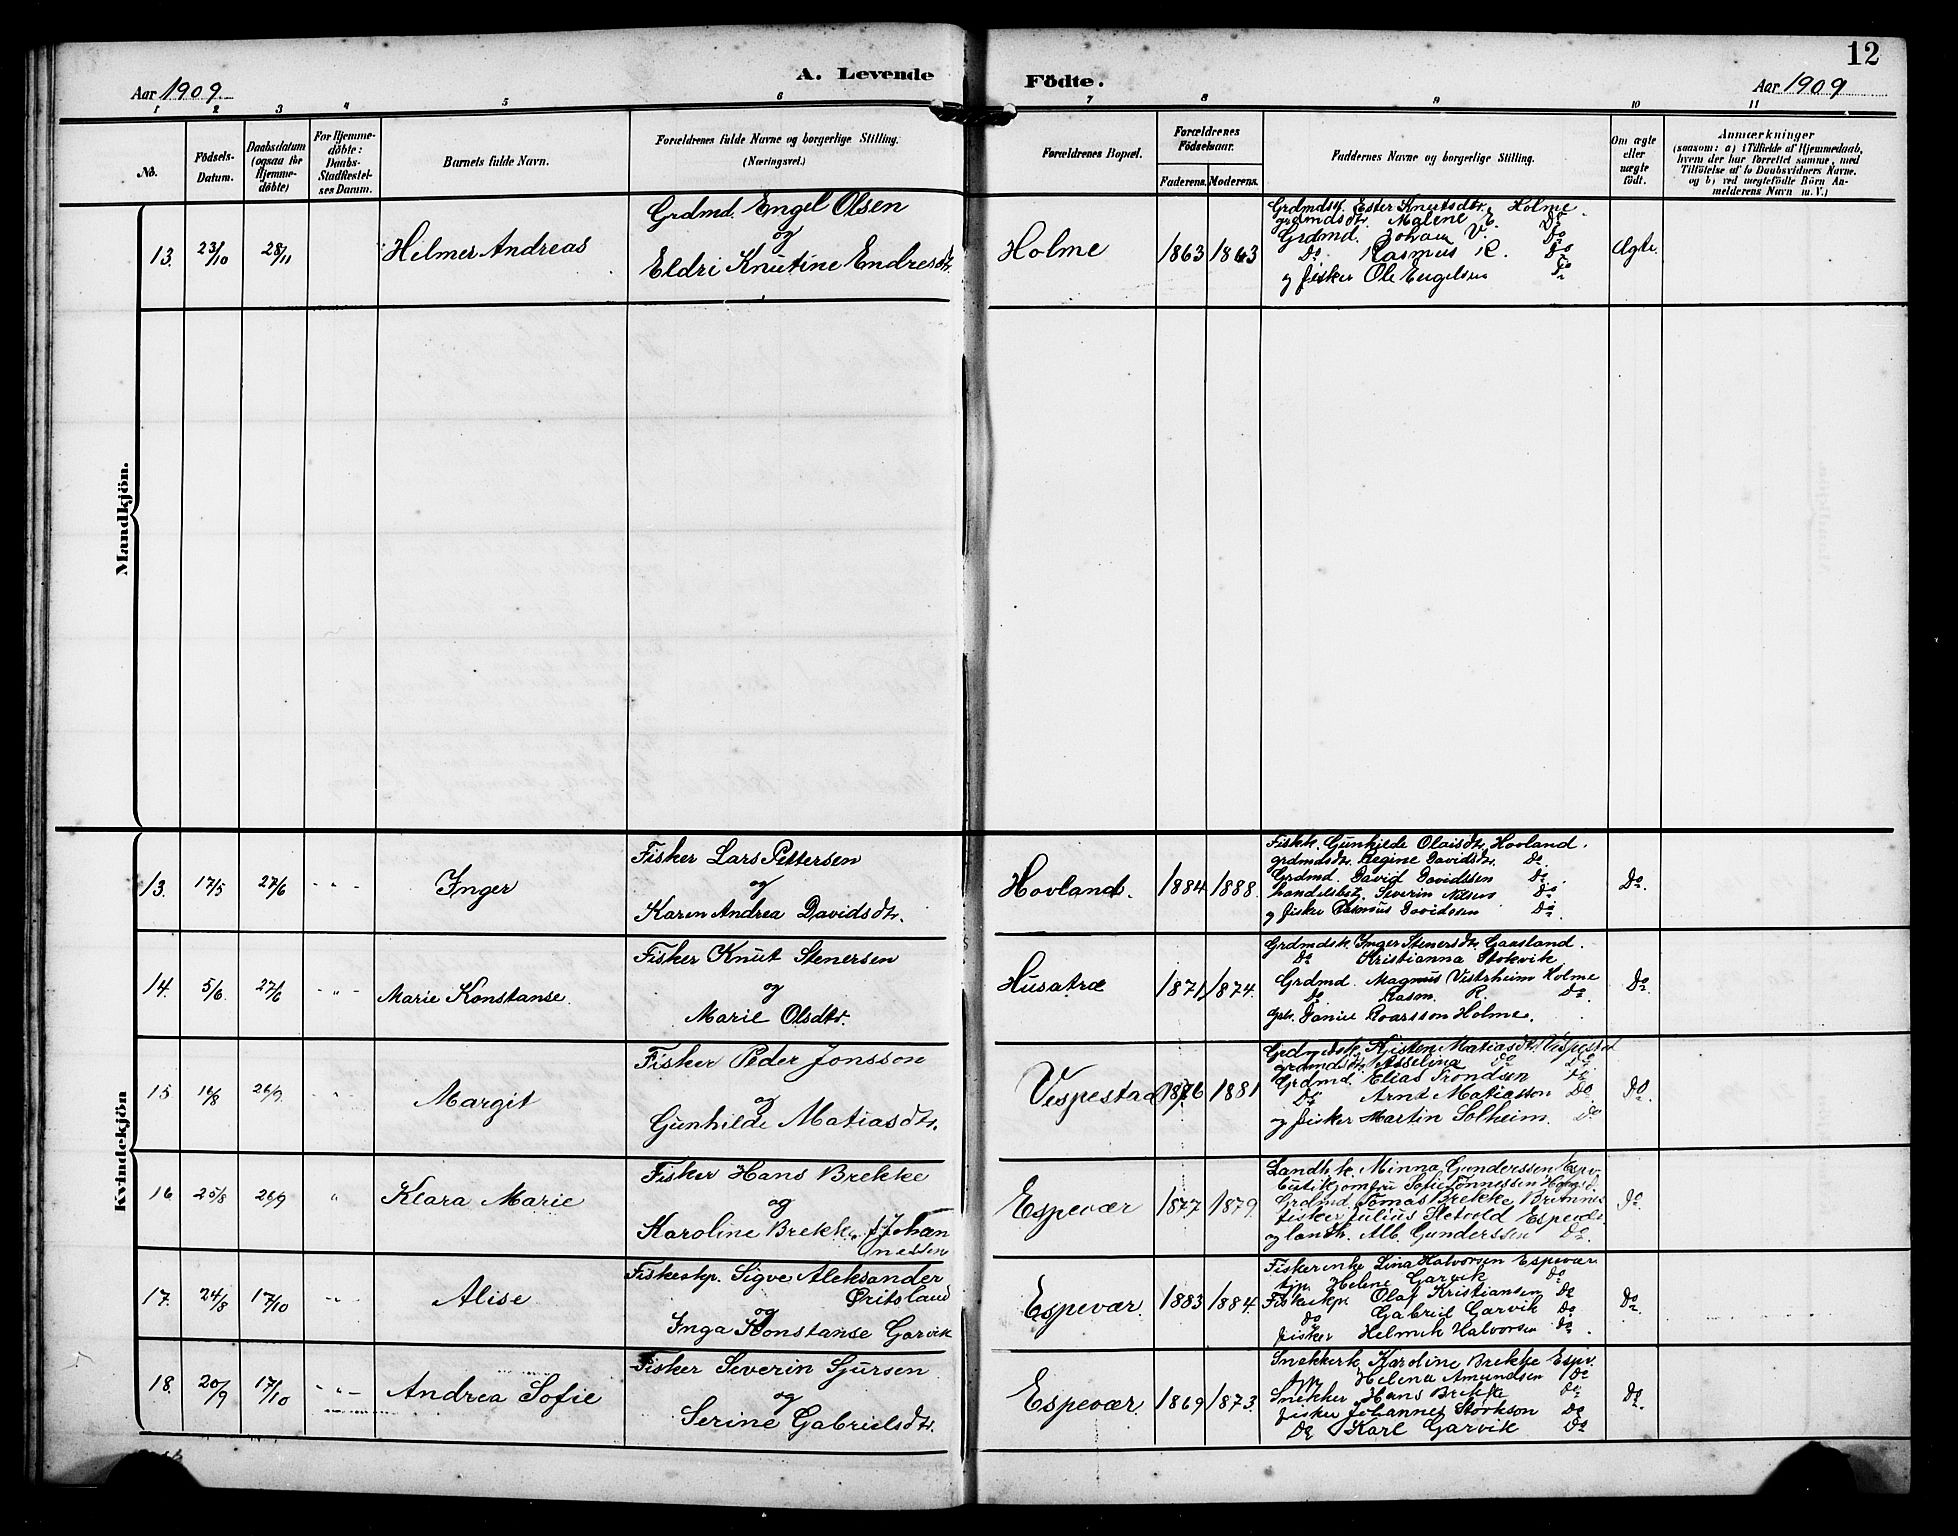 12
A. Levende Födte.
Aar 1909.
Aar 1909
1 2 3 4 5 6 7 8 9 10 11
No.
Födsels-Datum.
Daabsdatum (ogsaa for Hjemmedöbte)
For Hjemmedöbte: Daabs-Stadfæstelses Datum.
Barnets fulde Navn.
Forældrenes fulde Navne og borgerlige Stilling. (Næringsvei.)
Forældrenes Bopæl.
Forældrenes Födselsaar.
Faderens. Moderens.
Faddernes Navne og borgerlige Stilling.
Om ægte eller uægte födt.
Anmærkninger
(saasom: a) i Tilfælde af Hjemmedaab,
hvem der har forrettet samme, med
Tilföielse af to Daabsvidners Navne.
og b) ved uægtefödte Börn An-
melderens Navn m. V.)
Mandkjön.
13. 23/10 28/11 Hilmer Andreas
Grdmd. Engel Olsen
og
Eldri Knutine Endresdtr.
Holme 1863 1863
Grdmdsk. Ester Knutsdtr. Holme.
grdmdsdtr. Malene E. Do
Grdmd. Johan V. Do
Do Rasmus R. Do
og fisker Ole Engelsen Do
Ægte.
Kvindekjön
13. 17/5 27/6 - " - Inger
Fisker Lars Pettersen
og
Karen Andrea Davidsdtr.
Hovland. 1884 1888.
Fiskk. Gunhilde Olaisdtr Hovland.
grdmdsdtr. Regine Davidsdtr. Do
Grdmd. David Davidssen Do
handelsbst. Severin Nilsen Do
og fisker Rasmus Davidssen Do.
Do.
14. 5/6. 27/6 - " - Marie Konstanse.
Fisker Knut Stenersen
og
Marie Olsdtr.
Husatræ 1871 1874.
Grdmdsk. Inger Stenersdtr. Gaasland.
Do Kristianna Stokvik
Grdmd. Magnus Vistrheim Holme
Do Rasm. R. Do.
Daniel Roarsson Holme.
Do.
15. 16/8 26/9. " Margit
Fisker Peder Jonsson
og
Gunhilde Matiasdtr.
Vespestad 1876 1881
Grdmdsk. Kristen Matiasdtr. Vespestad
grdmdsdtr. Asselina Do Do.
Grdmd. Elias Trondsen Do
Do Arnt Matiasson Do
og fisker Martin Solheim. Do
Do.
16 25/8 26/9 " Klara Marie
Fisker Hans Brekke
og
Karoline Brekke f. Johan
nessen
Espevær 1877 1879.
Landh.k. Minna Gunderssen Espv.
Butikjomfru Sofie Tønnessen
Grdmd. Tomas Brekke Brimnes
fisker Julius Sletvold Espevær
og landh. Alb. Gunderssen Do.
Do.
17. 24/8 17/10 - " - Alise
Fiskeskp. Sigve Aleksander
Øritsland
og
Inga Konstanse Garvik
Espevær. 1883 1884.
Fiskerenke Lina Halvorsen Espevær
tjp. Helene Garvik Do
Fiskeskp Olaf Kristiansen Do
Do Gabriel Garvik Do
fisker Helmik Halvorsen Do.
Do.
18. 20/9 17/10 - " - Andrea Sofie
Fisker Severin Sjursen
og
Serine Gabrielsdtr.
Espevær. 1869 1873.
Snekkerk. Karoline Brekke Espv.
tjp. Helena Amundsen Do
Snekker Hans Brekke Do
fisker Johannes Storkson Do
Do Karl Garvik Do
Do.